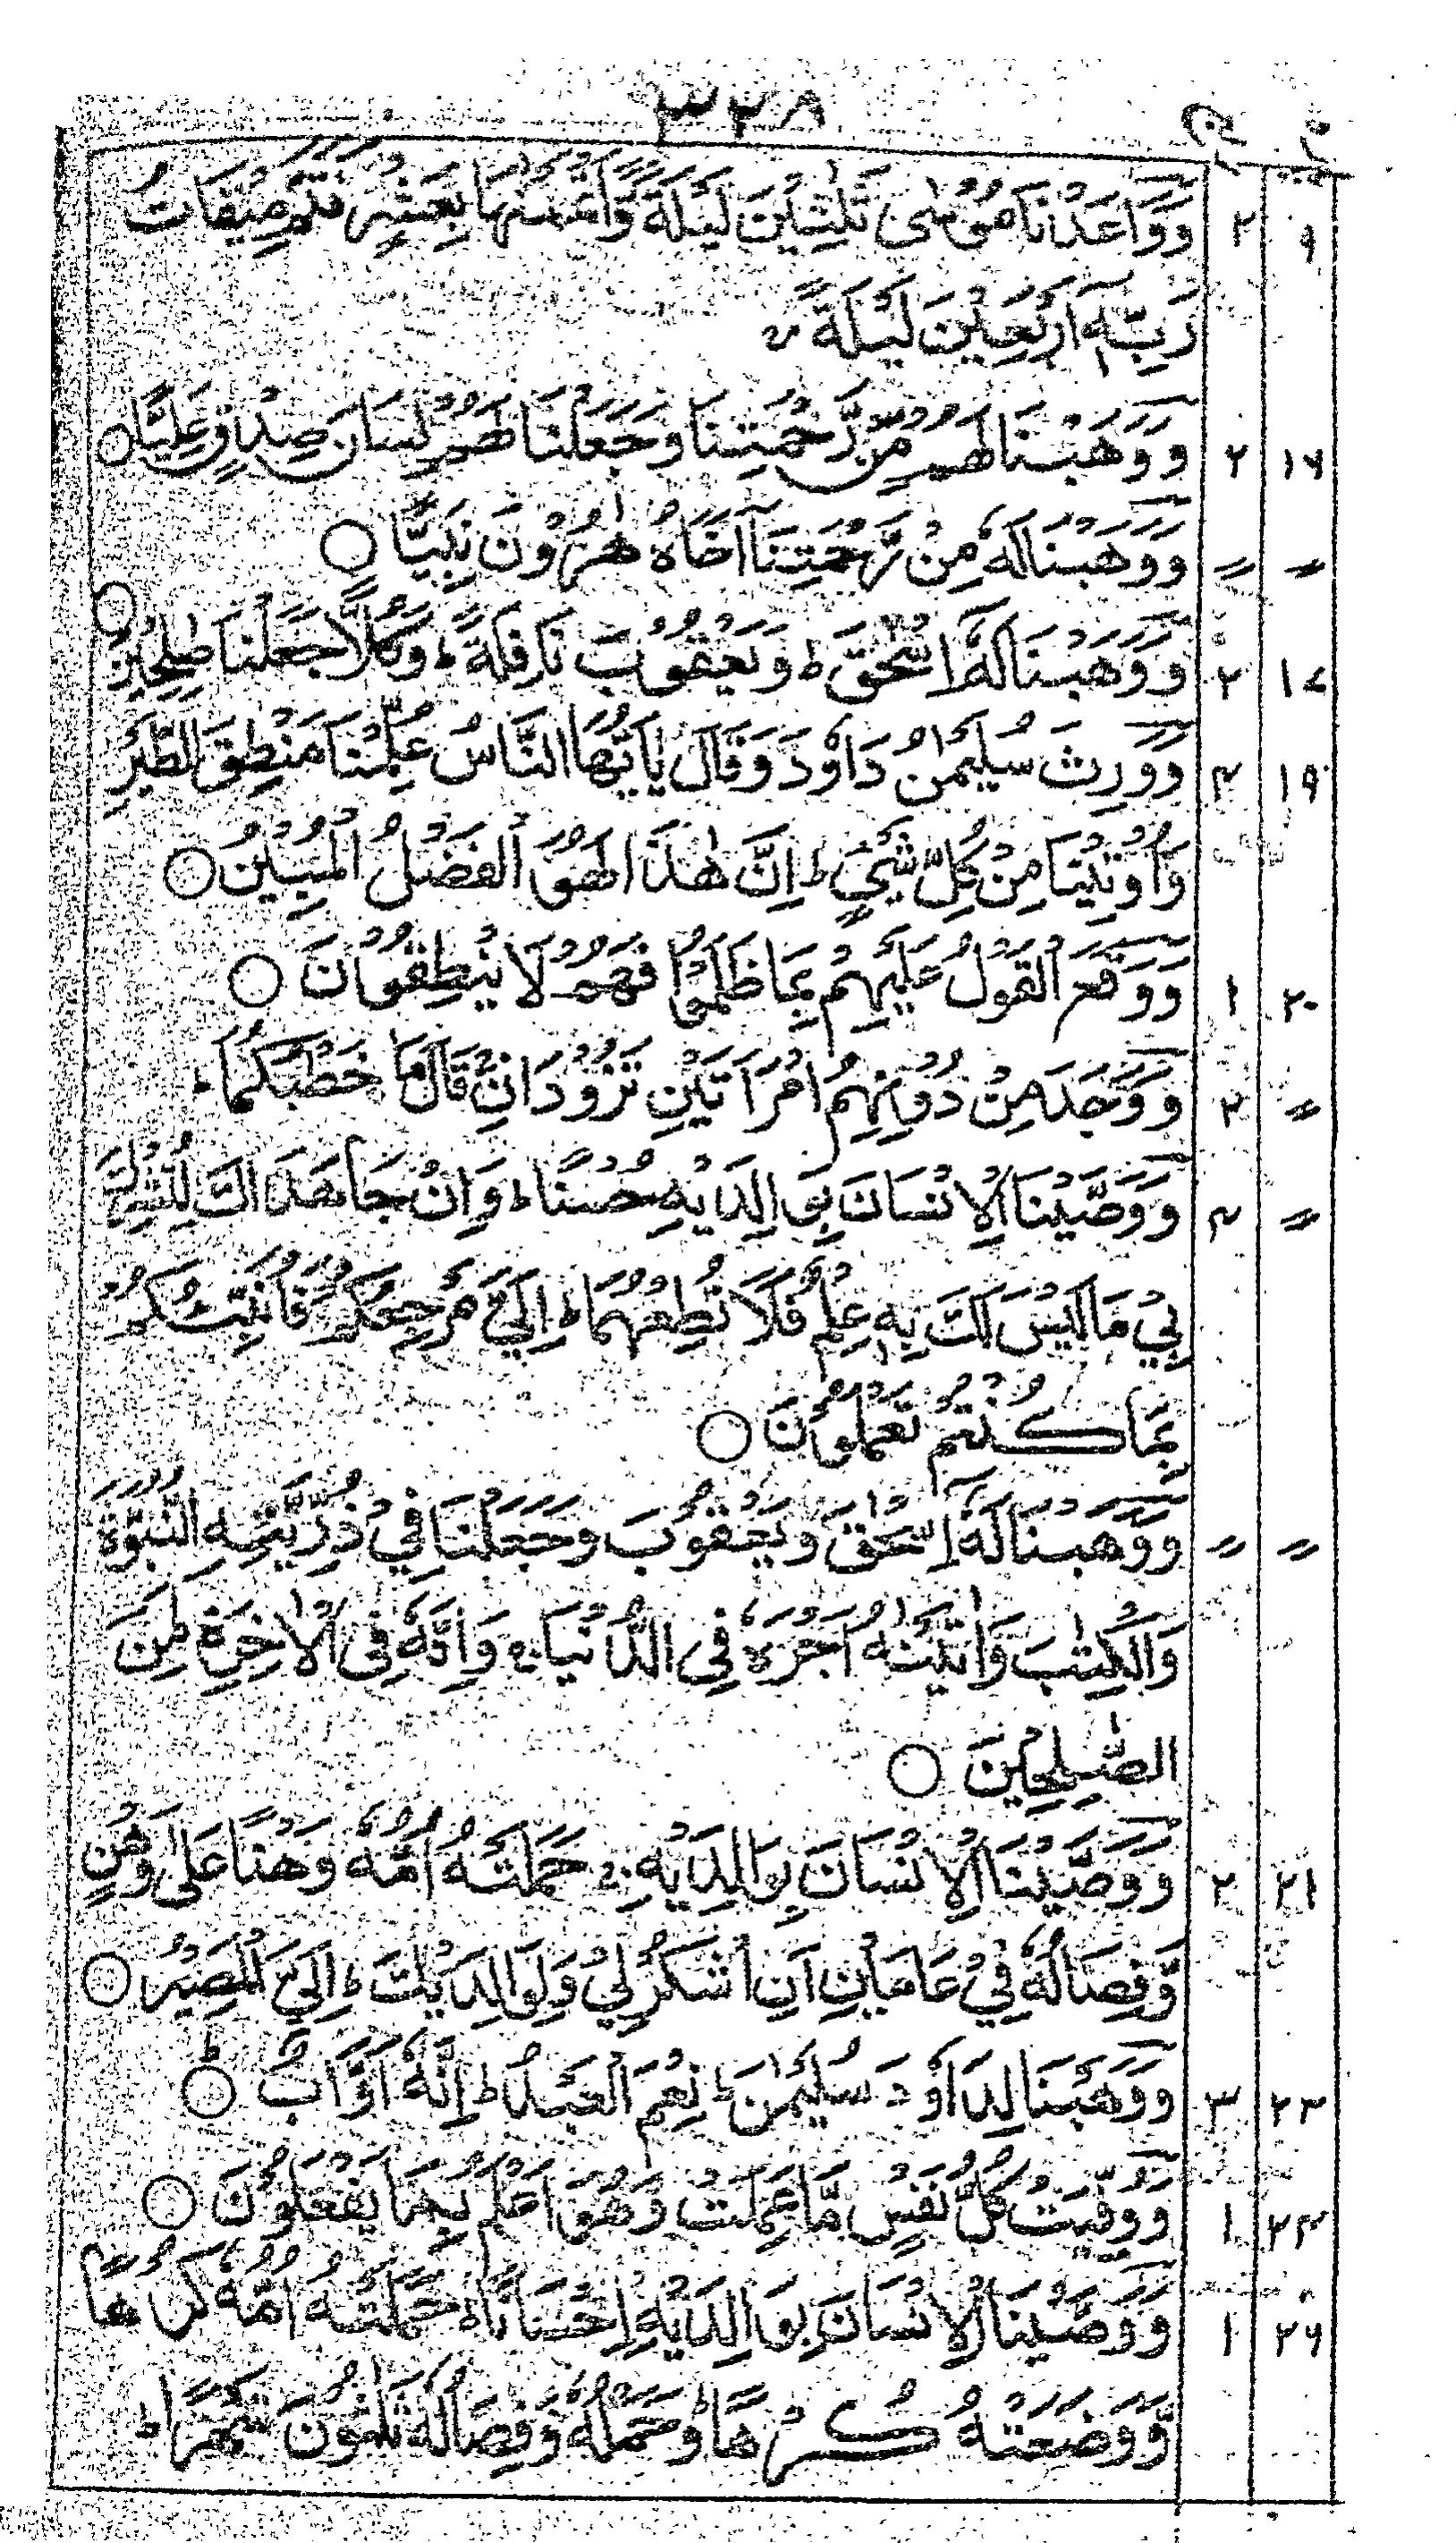 ۳۲۸
۹ ۲ وَوَاعَدْنَا مُوْسٰی ثَلٰثِیْنَ لَیْلَةً وَّاَتْمَمْنٰهَا بِعَشْرٍ فَتَمَّ مِیْقَاتُ
رَبِّهٖۤ اَرْبَعِیْنَ لَیْلَةً ۚ
۱۶ ۲ وَوَهَبْنَا لَهُمْ مِّنْ رَّحْمَتِنَا وَجَعَلْنَا لَهُمْ لِسَانَ صِدْقٍ عَلِیًّا ○
〃 〃 وَوَهَبْنَا لَهٗ مِنْ رَّحْمَتِنَاۤ اَخَاهُ هٰرُوْنَ نَبِیًّا ○
۱۷ ۲ وَوَهَبْنَا لَهٗۤ اِسْحٰقَ ؕ وَیَعْقُوْبَ نَافِلَةً ؕ وَكُلًّا جَعَلْنَا صٰلِحِیْنَ ○
۱۹ ۲ وَوَرِثَ سُلَیْمٰنُ دَاوٗدَ وَقَالَ یٰۤاَیُّهَا النَّاسُ عُلِّمْنَا مَنْطِقَ الطَّیْرِ
وَاُوْتِیْنَا مِنْ كُلِّ شَیْءٍ ؕ اِنَّ هٰذَا لَهُوَ الْفَضْلُ الْمُبِیْنُ ○
۲۰ ۱ وَوَقَعَ الْقَوْلُ عَلَیْهِمْ بِمَا ظَلَمُوْا فَهُمْ لَا یَنْطِقُوْنَ ○
〃 ۲ وَوَجَدَ مِنْ دُوْنِهِمُ امْرَاَتَیْنِ تَذُوْدَانِ ۚ قَالَ مَا خَطْبُكُمَا ؕ
〃 ۴ وَوَصَّیْنَا الْاِنْسَانَ بِوَالِدَیْهِ حُسْنًا ؕ وَاِنْ جَاهَدٰكَ لِتُشْرِكَ
بِیْ مَا لَیْسَ لَكَ بِهٖ عِلْمٌ فَلَا تُطِعْهُمَا ؕ اِلَیَّ مَرْجِعُكُمْ فَاُنَبِّئُكُمْ
بِمَا كُنْتُمْ تَعْمَلُوْنَ ○
〃 〃 وَوَهَبْنَا لَهٗۤ اِسْحٰقَ وَیَعْقُوْبَ وَجَعَلْنَا فِیْ ذُرِّیَّتِهِ النُّبُوَّةَ
وَالْكِتٰبَ وَاٰتَیْنٰهُ اَجْرَهٗ فِی الدُّنْیَا ۚ وَاِنَّهٗ فِی الْاٰخِرَةِ لَمِنَ
الصّٰلِحِیْنَ ○
۲۱ ۲ وَوَصَّیْنَا الْاِنْسَانَ بِوَالِدَیْهِ ۚ حَمَلَتْهُ اُمُّهٗ وَهْنًا عَلٰی وَهْنٍ
وَّفِصَالُهٗ فِیْ عَامَیْنِ اَنِ اشْكُرْ لِیْ وَلِوَالِدَیْكَ ؕ اِلَیَّ الْمَصِیْرُ ○
۲۳ ۳ وَوَهَبْنَا لِدَاوٗدَ سُلَیْمٰنَ ؕ نِعْمَ الْعَبْدُ ؕ اِنَّهٗۤ اَوَّابٌ ○ؕ
۲۴ ۱ وَوُفِّیَتْ كُلُّ نَفْسٍ مَّا عَمِلَتْ وَهُوَ اَعْلَمُ بِمَا یَفْعَلُوْنَ ○
۲۶ ۱ وَوَصَّیْنَا الْاِنْسَانَ بِوَالِدَیْهِ اِحْسَانًا ؕ حَمَلَتْهُ اُمُّهٗ كُرْهًا
وَّوَضَعَتْهُ كُرْهًا ؕ وَحَمْلُهٗ وَفِصَالُهٗ ثَلٰثُوْنَ شَهْرًا ؕ